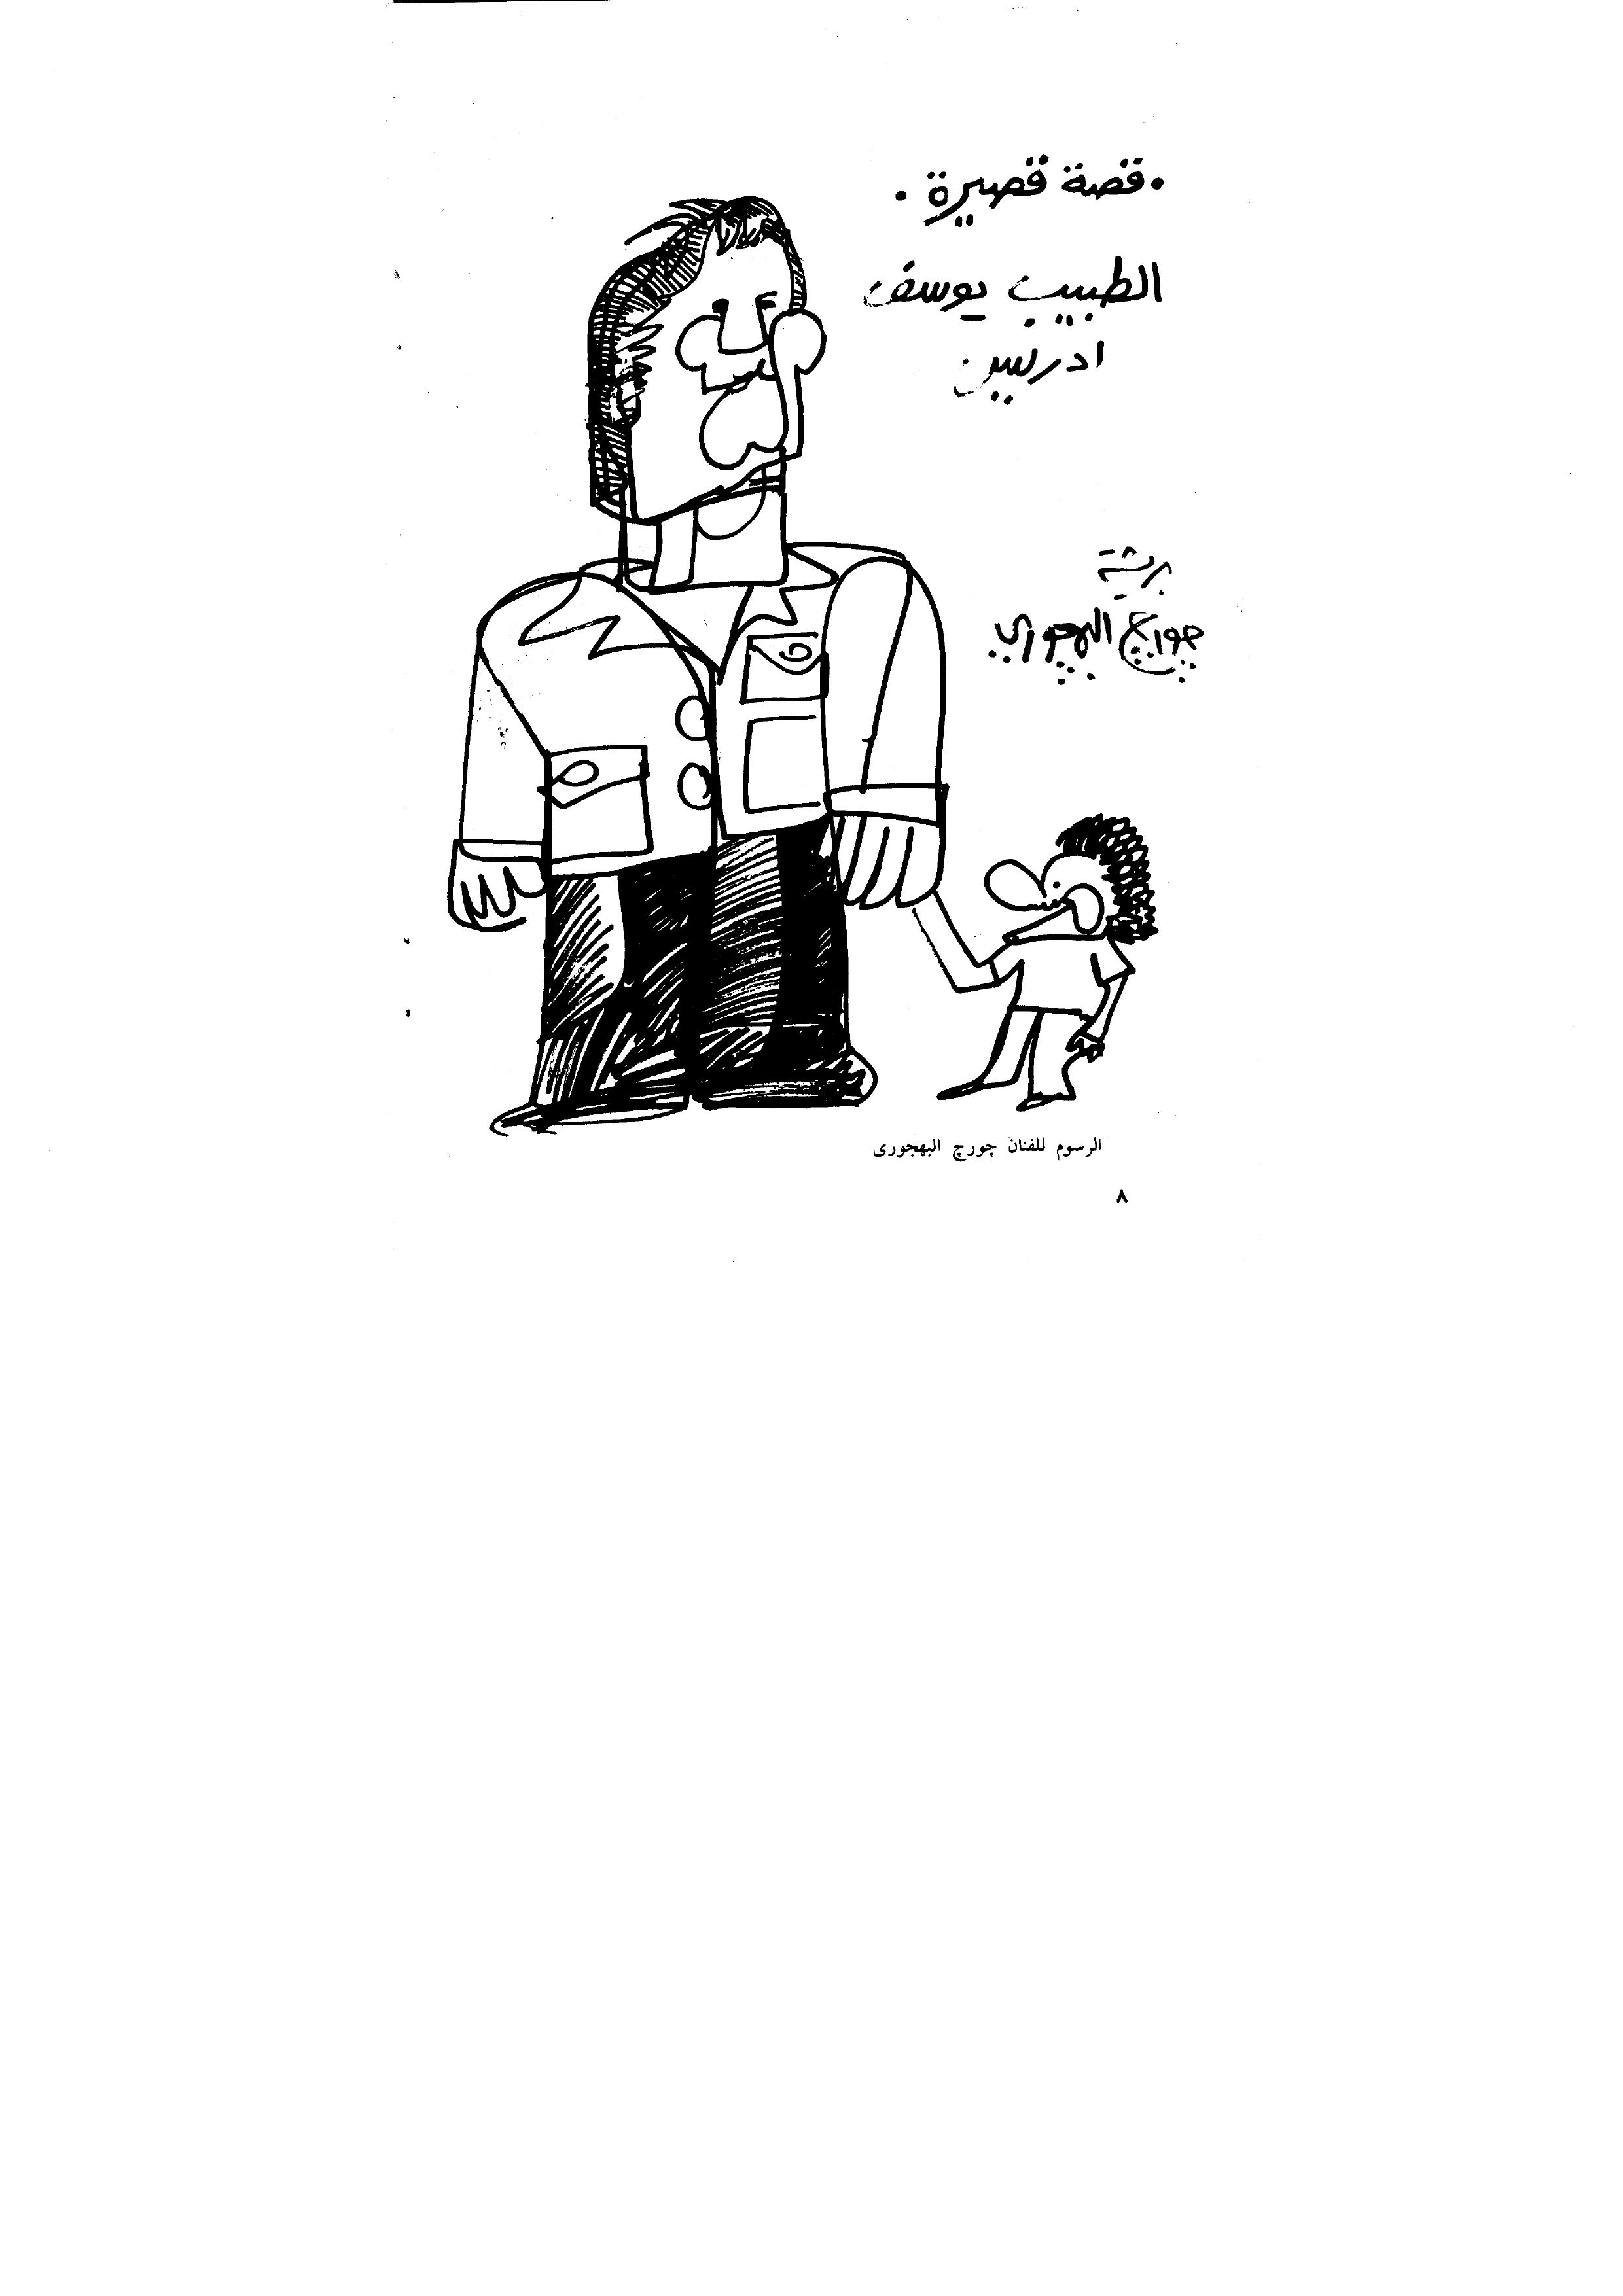 . قصة قصيرة .
الطبيب يوسف
ادريس
بريشة
چورچ البهجوري
الرسوم للفنان چورچ البهجورى
٨